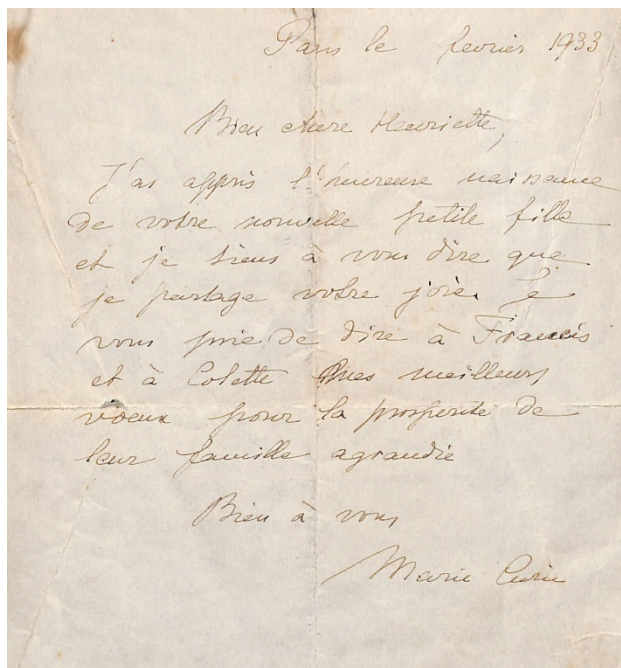 Paris le fevrier 1933
Bien chere Henriette,
J'ai appris l'heureuse naissance
de votre nouvelle petite fille
et je tiens à vous dire que
je partage votre joie. Je
vous prie de dire à Francis
et à Colette mes meilleurs
voeux pour la prosperité de
leur famille agrandie
Bien à vous
Marie Curie